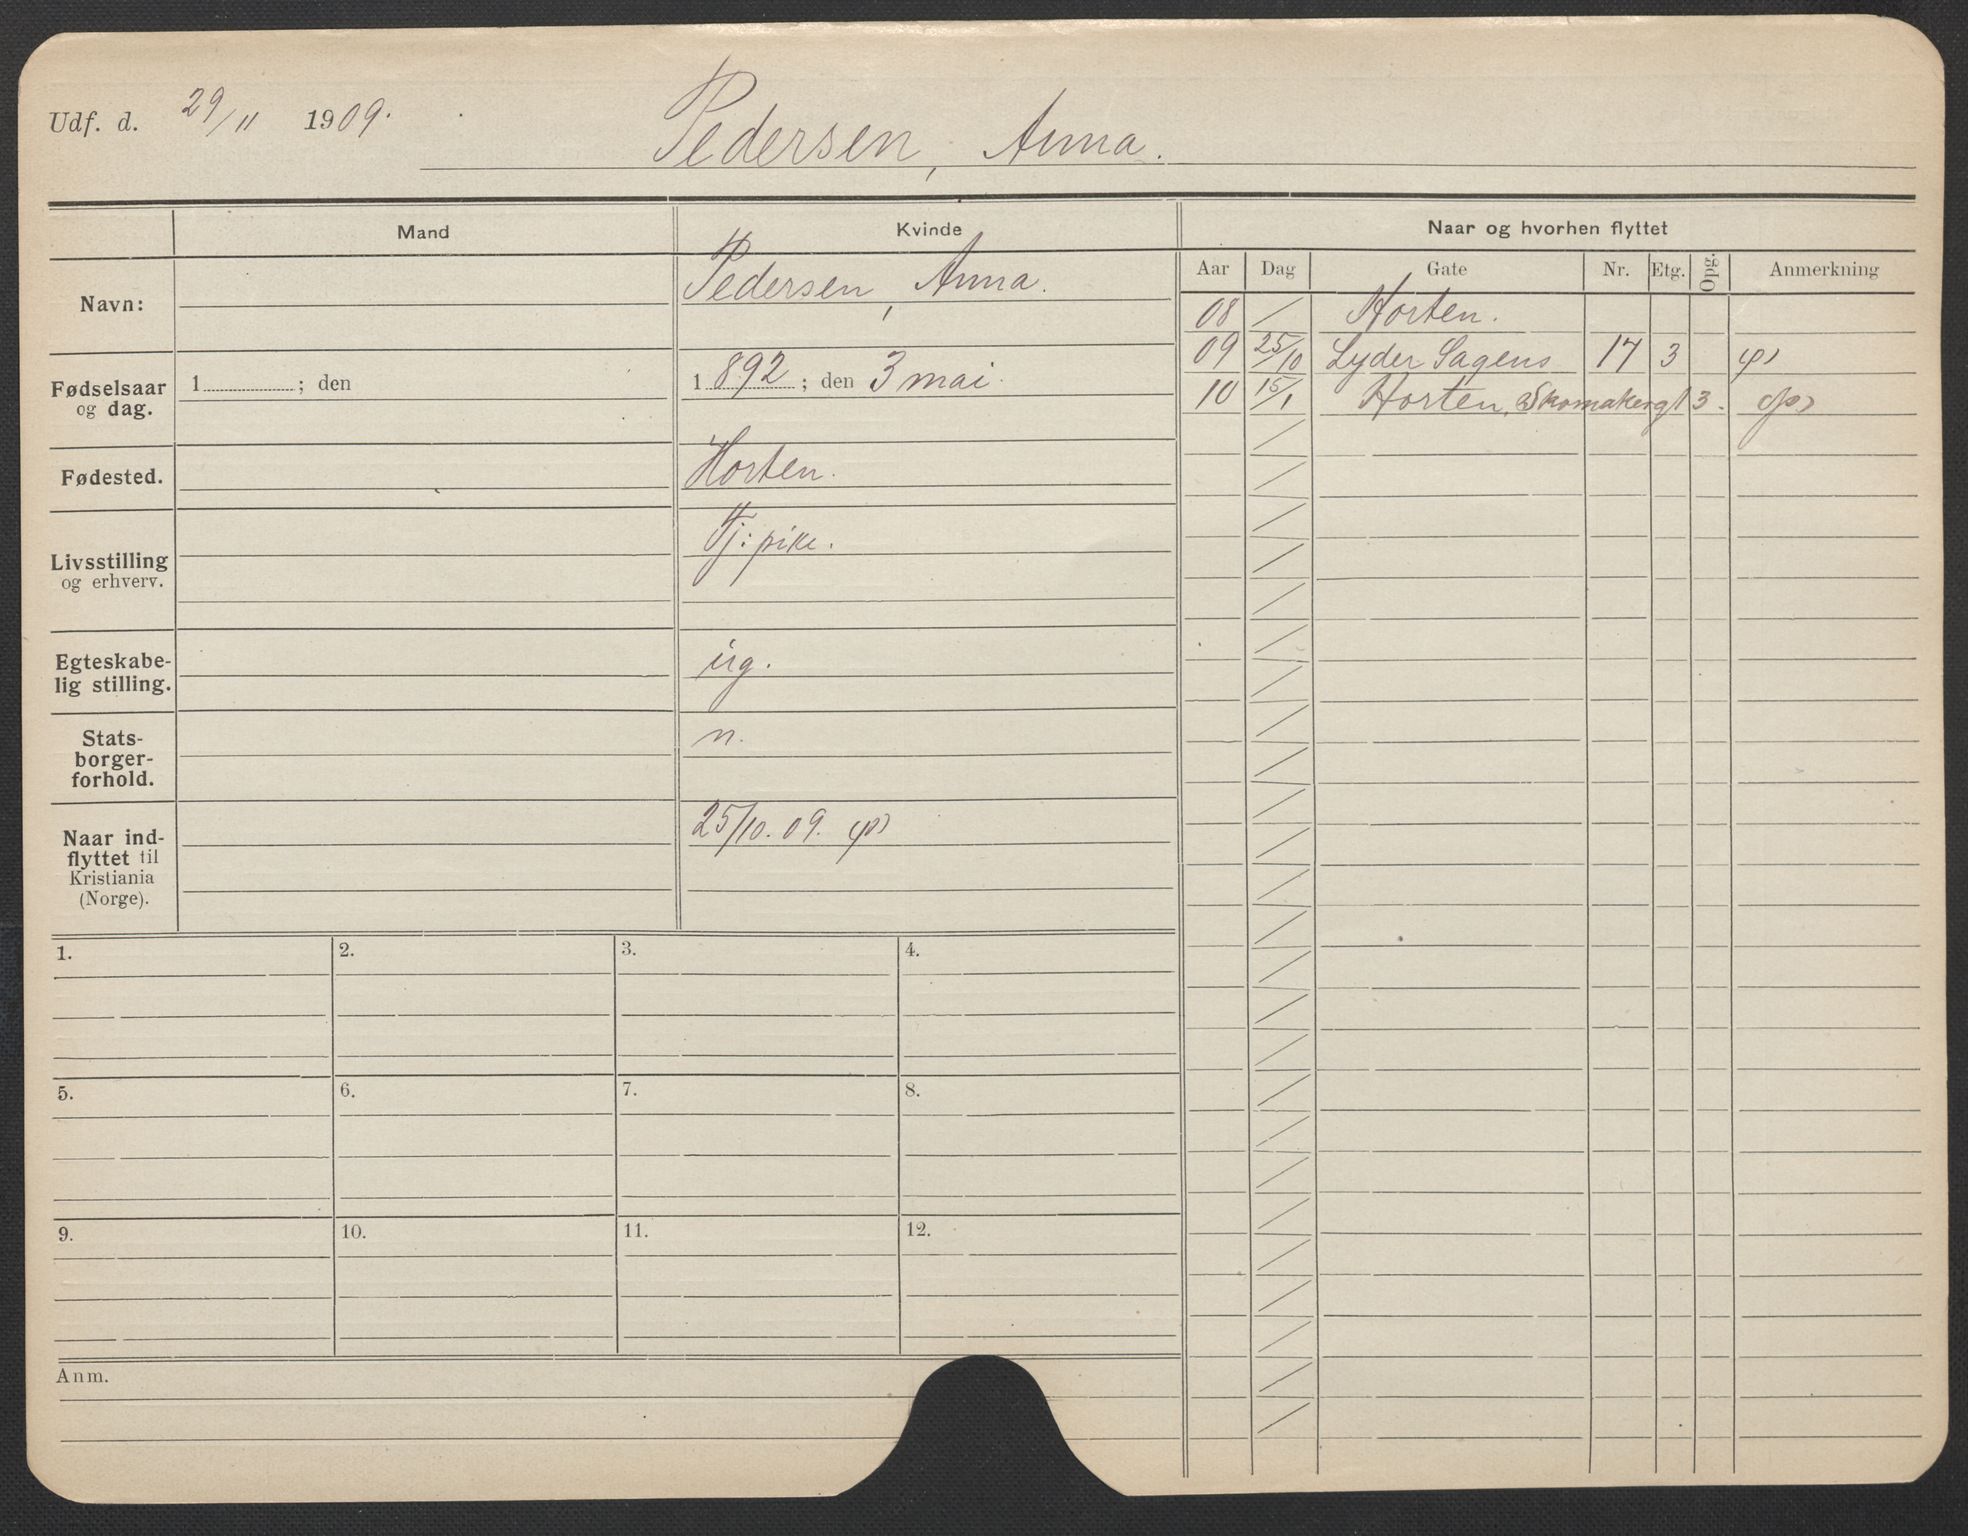 Udf. d. 29/11 1909.
Pedersen, Anna.
Mand
Kvinde
Naar og hvorhen flyttet
Aar Dag Gate Nr. Etg. Opg. Anmerkning
Navn:
Pedersen, Anna.
Fødselsaar og dag.
1 ; den
1892; den 3 mai.
Fødested.
Horten.
Livsstilling og erhverv.
Tj: pike.
Egteskabe-
lig stilling.
ug.
Stats-
borger-
forhold.
n.
Naar ind-
flyttet til
Kristiania
(Norge).
25/10. 09. (p)
08 / Horten.
09 25/10 Lyder Sagens 17 3 (p)
10 15/1 Horten, Skomakergt 3. (p)
1. 2. 3. 4.
5. 6. 7. 8.
9. 10. 11. 12.
Anm.